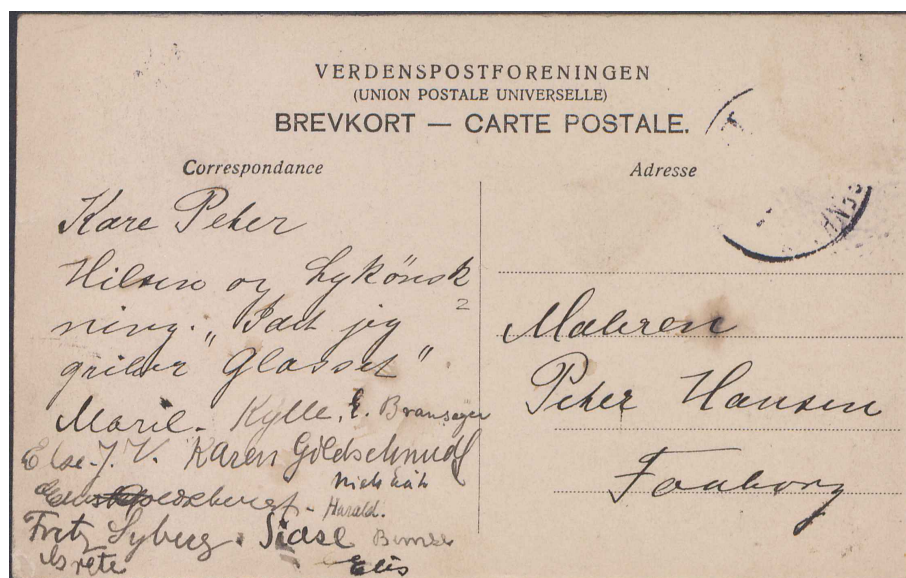 VERDENSPOSTFORENINGEN
(UNION POSTALE UNIVERSELLE)
BREVKORT — CARTE POSTALE.
Correspondance
Kære Peter
Hilsen og Lykönsk
ning. "Idet jeg
griber Glasset"
Marie. Kylle, E. Bransager
Else. J. V. Karen Goldschmidt
Harald.
Fritz Syberg. Sidse Bimse
Grete Elis
Adresse
Maleren
Peter Hansen
Faaborg